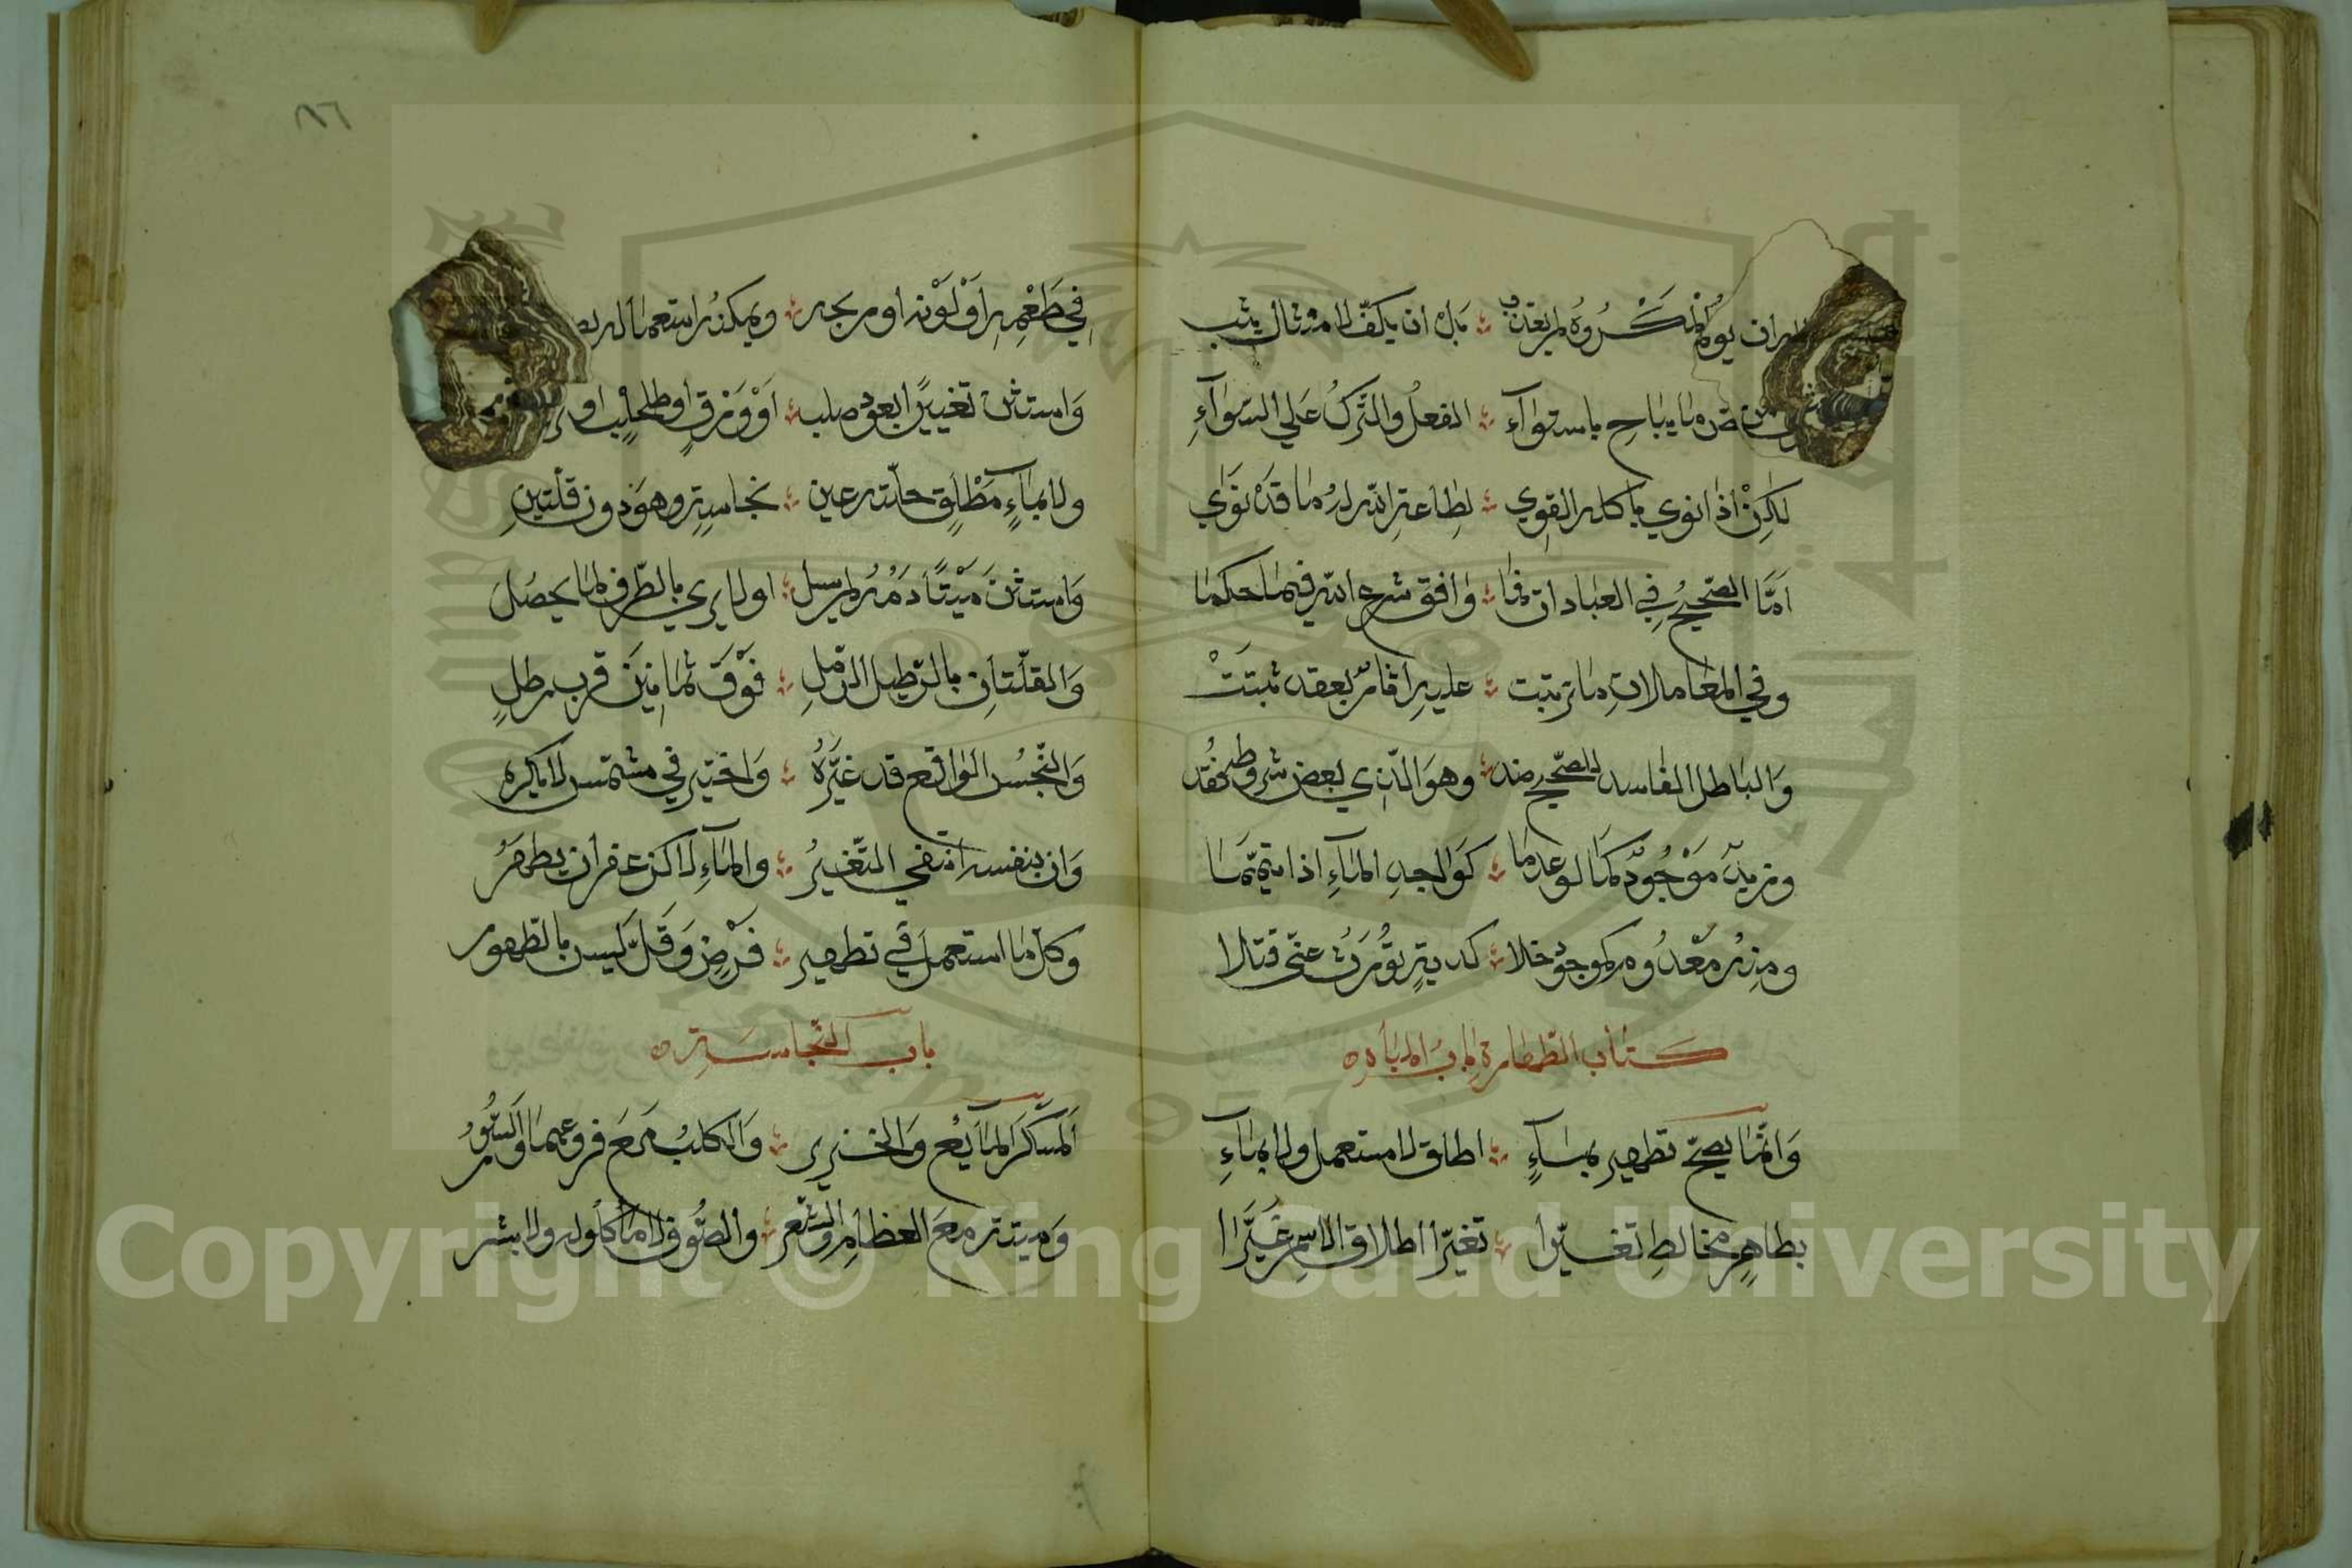 ان يؤم المكروه لم يعذب بل ان يكف لامتثال يثب
ما يباح باستوآء الفعل والترك علي السوآء
لكن اذا نوي باكله القوي لطاعة الله له ما قد نوي
امّا الصحيح في العبادات فما وافق شرع الله فيما حكما
وفي المعاملات ما ترتبت عليه اثار بعقد ثبتت
والباطل الفاسد للصحيح ضد وهو الذي بعض شروطه فقد
ومزيد موجود كما لو عدما كواجد المآء اذا تيمما
ومنه معدوم كموجود خلا كدية تورث عن قتلا
كتاب الطهارة باب المياه
وانما يصح تطهير بمآء اطلق لا مستعمل ولا بمآء
بطاهر مخالط تغيرا تغيرا اطلاق الاسم غيرا
٨٦
في طعمه او لونه او ريحه ويمكن استعماله
واستثن تغييرا بعود صلب او ورق او طحلب او
ولا بمآء مطلق حلته عين نجاسة وهو دون قلتين
واستثن ميتا دمه لم يسل او لا يري بالطرف لما يحصل
والقلتان بالرطيل الرملي فوق ثمانين قرب رطل
والنجس الواقع قد غيره واختير في مشمس لا يكره
وان بنفسه انتفي التغير والمآء لا كزعفران يطهر
وكل ما استعمل في تطهير فرض وقل ليس بالطهور
باب النجاسة
المسكر المآيع والخنزير والكلب مع فرعهما والسؤر
وميتة مع العظام والشعر والصوف لا ماكولة ولا بشر
Copyright © King Saud University